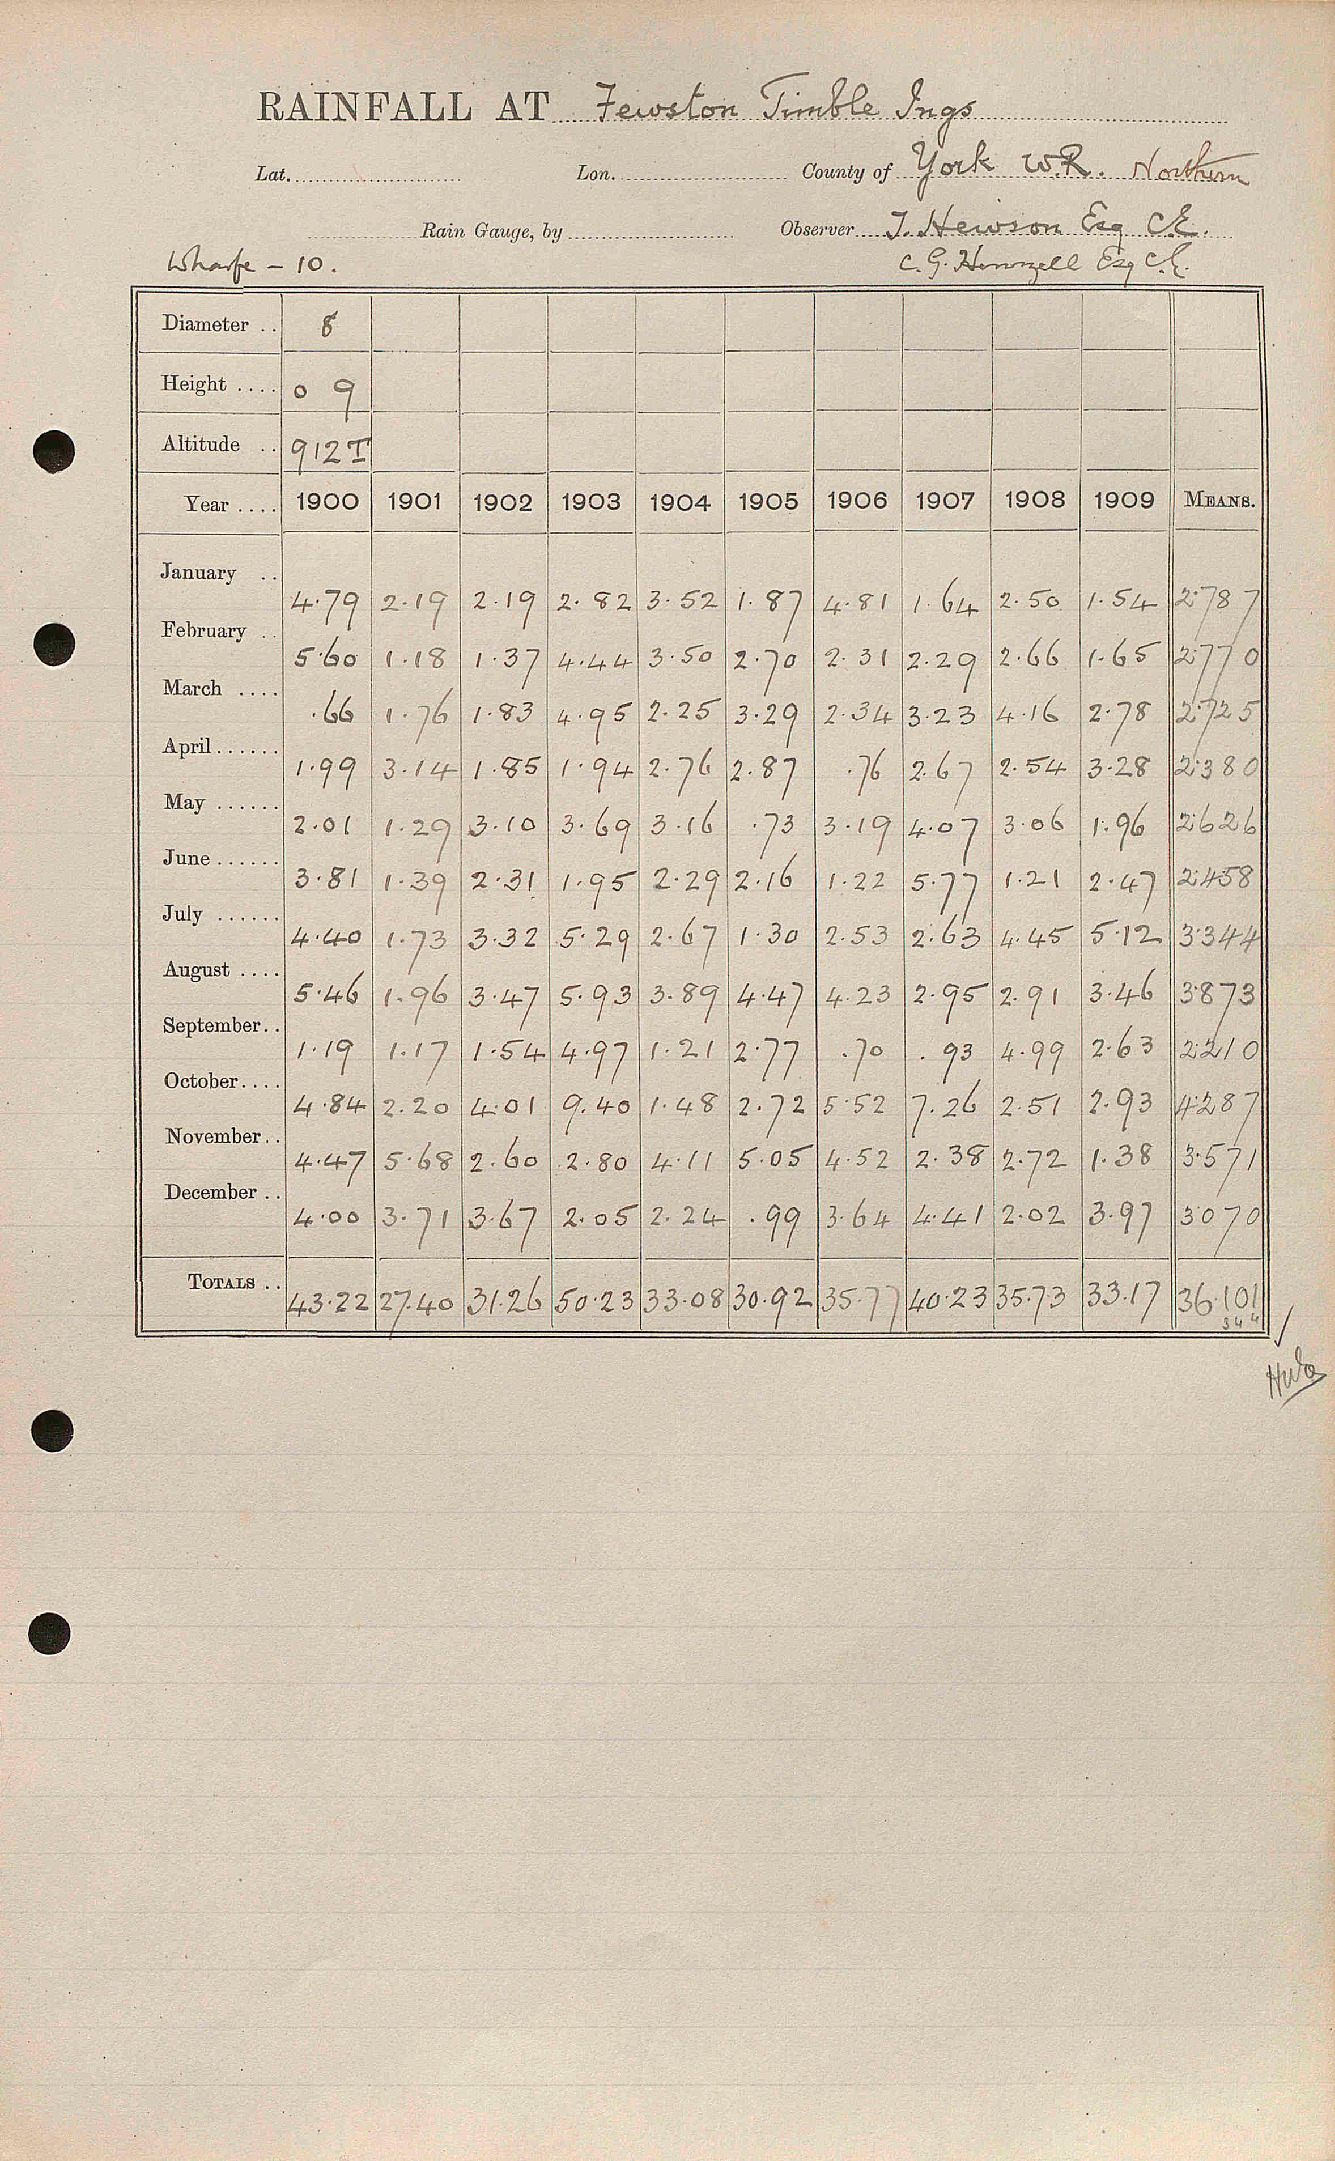 RAINFALL AT Fewston Timble Ings
Lat. Lon. County of York W.R. Northern
Rain Gauge, by Observer T. Hewson Esq C.E.
Wharfe - 10. C. G. Esq C.E.
Diameter .. 8
Height .... 0 9
Altitude .. 912 T
Year .... 1900 1901 1902 1903 1904 1905 1906 1907 1908 1909 MEANS.
January .. 4.79 2.19 2.19 2.82 3.52 1.87 4.81 1.64 2.50 1.54 2.787
February .. 5.60 1.18 1.37 4.44 3.50 2.70 2.31 2.29 2.66 1.65 2.770
March .... .66 1.76 1.83 4.95 2.25 3.29 2.34 3.23 4.16 2.78 2.725
April ...... 1.99 3.14 1.85 1.94 2.76 2.87 .76 2.67 2.54 3.28 2.380
May ...... 2.01 1.29 3.10 3.69 3.16 .73 3.19 4.07 3.06 1.96 2.626
June ...... 3.81 1.39 2.31 1.95 2.29 2.16 1.22 5.77 1.21 2.47 2.458
July ...... 4.40 1.73 3.32 5.29 2.67 1.30 2.53 2.63 4.45 5.12 3.344
August .... 5.46 1.96 3.47 5.93 3.89 4.47 4.23 2.95 2.91 3.46 3.873
September.. 1.19 1.17 1.54 4.97 1.21 2.77 .70 .93 4.99 2.63 2.210
October.... 4.84 2.20 4.01 9.40 1.48 2.72 5.52 7.26 2.51 2.93 4.287
November.. 4.47 5.68 2.60 2.80 4.11 5.05 4.52 2.38 2.72 1.38 3.571
December .. 4.00 3.71 3.67 2.05 2.24 .99 3.64 4.41 2.02 3.97 3.070
TOTALS .. 43.22 27.40 31.26 50.23 33.08 30.92 35.77 40.23 35.73 33.17 36.101
344